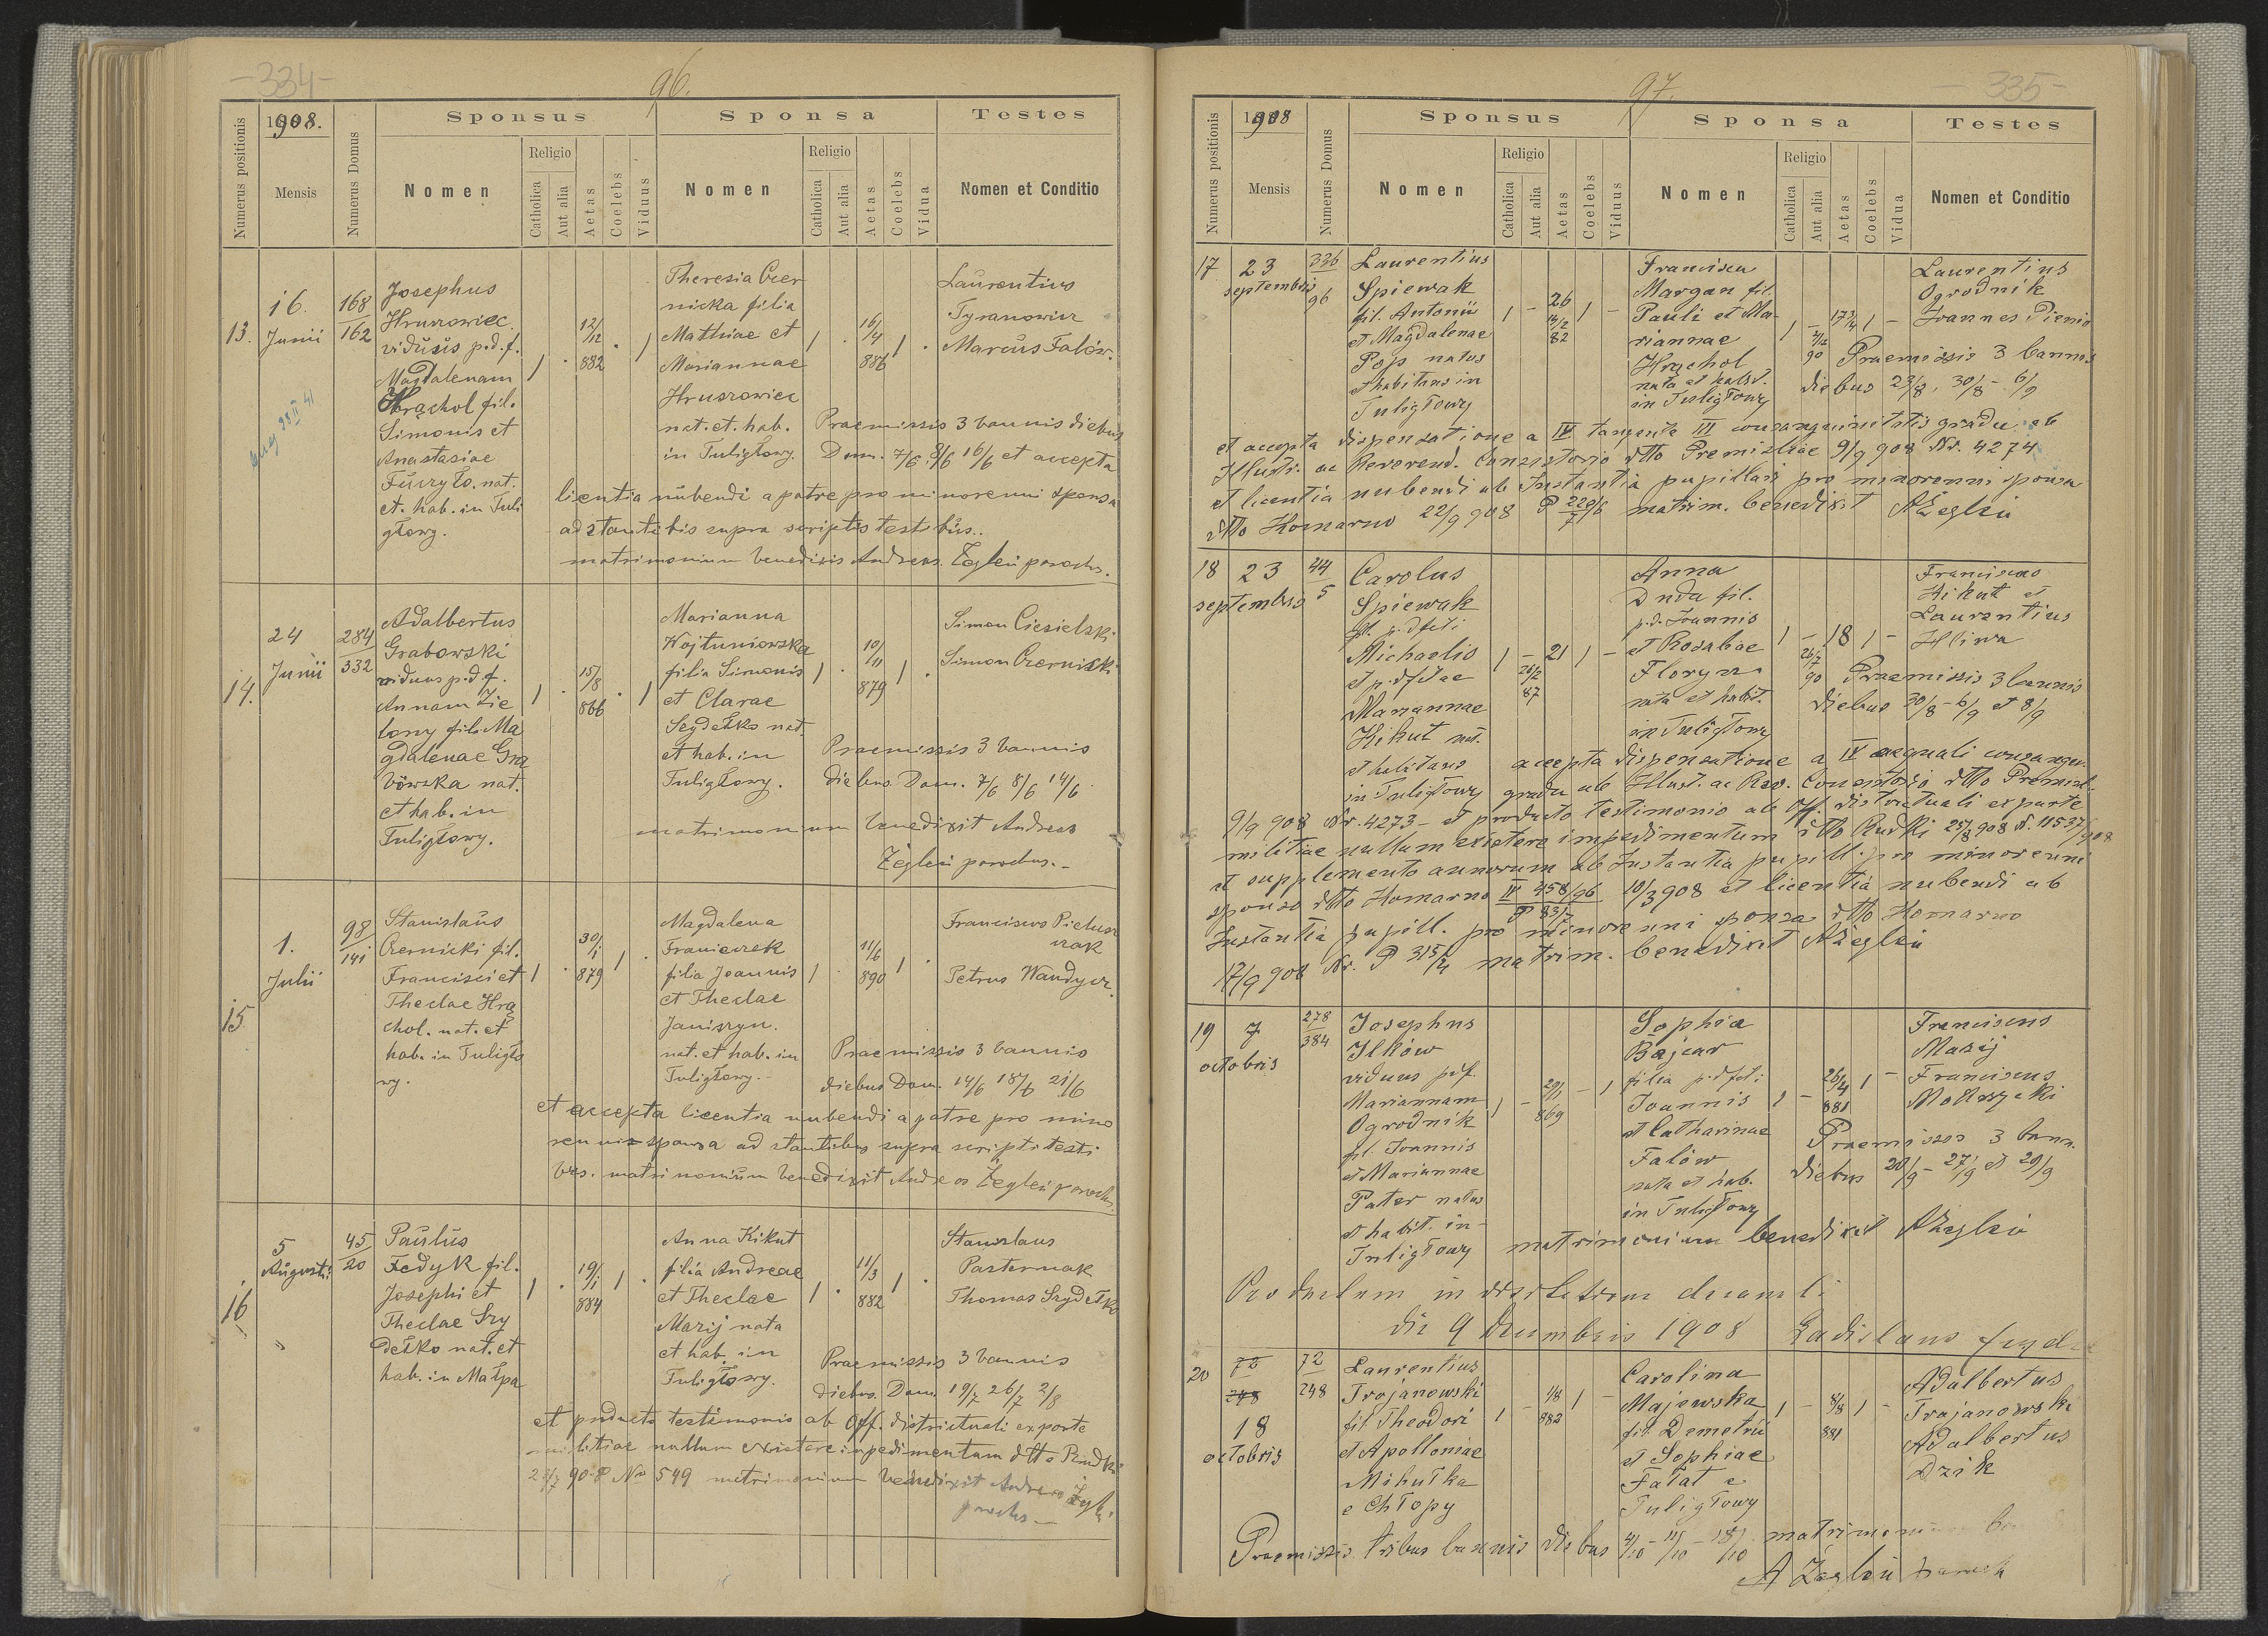 -334-
96.
1908.
Sponsus
Sponsa
Testes
Numerus positionis
Mensis
Numerus Domus
Nomen
Religio
Catholica
Aut alia
Aetas
Coelebs
Viduus
Nomen
Religio
Catholica
Aut alia
Aetas
Coelebs
Vidua
Nomen et Conditio
13.
16.
Junii
168
162
Josephus
Hruszowiec
viduus p.d.f.
Magdalenam
Hrąchol fil.
Simonis et
Anastasiae
Fuczyło. nat.
et. hab. in Tuli
głowy.
1 . 12/12 882 . 1
Theresia Czer
nicka filia
Mathiae et
Mariannae
Hruszowiec
nat. et. hab.
in Tuligłowy.
1 . 16/4 886 1 .
Laurentius
Tyranowicz
Marcus Falów.
Praemissis 3 bannis diebus
Dom. 7/6 8/6 16/6 et accepta
licentia nubendi a patre pro minorenni sponsa
adstantibis supra scriptis testibus..
matrimonium benedixis Andreas Żegleń parochs.
14.
24
Junii
284
332
Adalbertus
Grabowski
viduus p.d.f.
Annam Zie
lony fil. Ma
gdalenae Gra
bówska nat.
et hab. in
Tuligłowy.
1 . 15/8 866 . 1
Marianna
Wojtuniowska
filia Simonis
et Clarae
Szydełko nat.
et hab. in
Tuligłowy.
1 . 10/11 879 1 .
Simon Ciesielski
Simon Czernicki
Praemissis 3 bannis
diebus Dom. 7/6 8/6 14/6
matrimonium benedixit Andreas
Żegleń parochus.-
15.
1.
Julii
98
141
Stanislaus
Czernicki fil.
Francisci et
Theclae Hrą
chol. nat. et
hab. in Tuligło
wy.
1 . 30/1 879 1 .
Magdalena
Franieczek
filia Joannis
et Theclae
Janiszyn.
nat. et hab. in
Tuligłowy.-
1 . 11/6 890 1 .
Franciscus Pietusz
Petrus Wandycz.
Praemissis 3 bannis
diebus Dom. 14/6 18/6 21/6
et accepta licentia nubendi a patre pro mino
rennis sponsa ad stantibus supra scripti testi
bus. matrimonium benedixit Andreas Żegleń parochs.
16
5
Augusti
45
20
Paulus
Fedyk fil.
Josephi et
Theclae Szy
dełko nat. et
hab. in Małpa
1 . 19/1 884 1 .
Anna Kikut
filia Andreae
et Theclae
Mazij nata
et hab. in
Tuligłowy.
1 . 11/3 882 1 .
Stanislaus
Pasternak
Thomas Szydełko
Praemissis 3 bannis
diebus. Dom. 19/7 26/7 2/8
et producto testimonio ab Off. districtuali exparte
militiae nullum existere impedimentum dtto Rudki
No 549 matrimonium benedixit Andreas
parochs.-
97.
- 335-
1908
Sponsus
Sponsa
Testes
Numerus positionis
Mensis
Numerus Domus
Nomen
Religio
Catholica
Aut alia
Aetas
Coelebs
Viduus
Nomen
Religio
Catholica
Aut alia
Aetas
Coelebs
Vidua
Nomen et Conditio
17
23
septembris
336
96
Laurentius
Spiewak
fil. Antonii
et Magdalenae
Pojs natus
et habitans in
Tuligłowy
1 - 26 14/2 82 1 -
Francisca
Margan fil.
Pauli et Ma-
riannae
Hrąchol
nata et habit.
in Tuligłowy
1 - 17 3/4 90 1 -
Laurentius
Ogrodnik
Joannes
Praemissis 3 bannis
diebus 23/8, 30/8 - 6/9
et accepta dispensatione a IV tangente III consanguinitatis gradu ab
Illustr. ac Reverend. Consistorio dtto Premisliae 9/9 908 Nr. 4274
et licentia nubendi ab Instantia pupillari pro minorenni sponsa
dtto Komarno 22/9 908 matrim. benedixit AŻegleń
18
23
septembris
44
5
Carolus
Spiewak
fil. p.dfcti
Michaelis
et p.dfctae
Mariannae
Kikut nat.
et habitans
in Tuligłowy
1 - 21 26/2 87 1 -
Anna
Duda fil.
p.d. Joannis
et Rosaliae
Florysz
nata et habit.
in Tuligłowy
1 - 18 26/7 90 1 -
Franciscus
Kikut et
Laurentius
Hliwa
Praemissis 3 bannis
diebus 30/8 - 6/9 et 8/9
accepta dispensatione a IV aequali consangu.
gradu ab Illust. ac Rev. Consistorio dtto Premisl.
9/9 908 Nr. 4273 - et producto testimonio ab Off. districtuali exparte
militiae nullum existere impedimentum dtto Rudki 25/8 908 N. 11537/908
et supplemento annorum ab Instantia pupill. pro minorenni
sponso dtto Komarno 10/3 908 et licentia nubendi ab
Instantia pupill. pro minorenni sponsa dtto Komarno
17/9 908 Nr. P 315/4 matrim. benedixit AŻegleń
19
7
octobris
278
384
Josephus
Ilków
viduus pdf.
Mariannam
Ogrodnik
fil. Joannis
et Mariannae
Pater natus
et habit. in
Tuligłowy
1 - 29/1 869 - 1
Sophia
Bajcar
filia p.dfcti
Joannis
et Catharinae
Falów
nata et hab.
in Tuligłowy
1 - 26/4 881 1 -
Franciscus
Mazij
Franciscus
Praemissis 3 bann.
diebus 20/9 - 27/9 et 29/9
matrimonium benedixit AŻegleń
Productum in visitatione decanali
die 9 Decembris 1908 Ladislaus
20
72
248
18
octobris
72
248
Laurentius
Trojanowski
fil. Theodori
et Apolloniae
Mihułka
e Chłopy
1 - 1/8 882 1 -
Carolina
Majewska
fil. Demetrii
et Sophiae
Fałat e
Tuligłowy
1 - 8/8 881 1 -
Adalbertus
Trojanowski
Adalbertus
Dzik
Praemissis tribus bannis diebus 4/10 - 11/10 - 18/10 matrimonium
A Żegleń